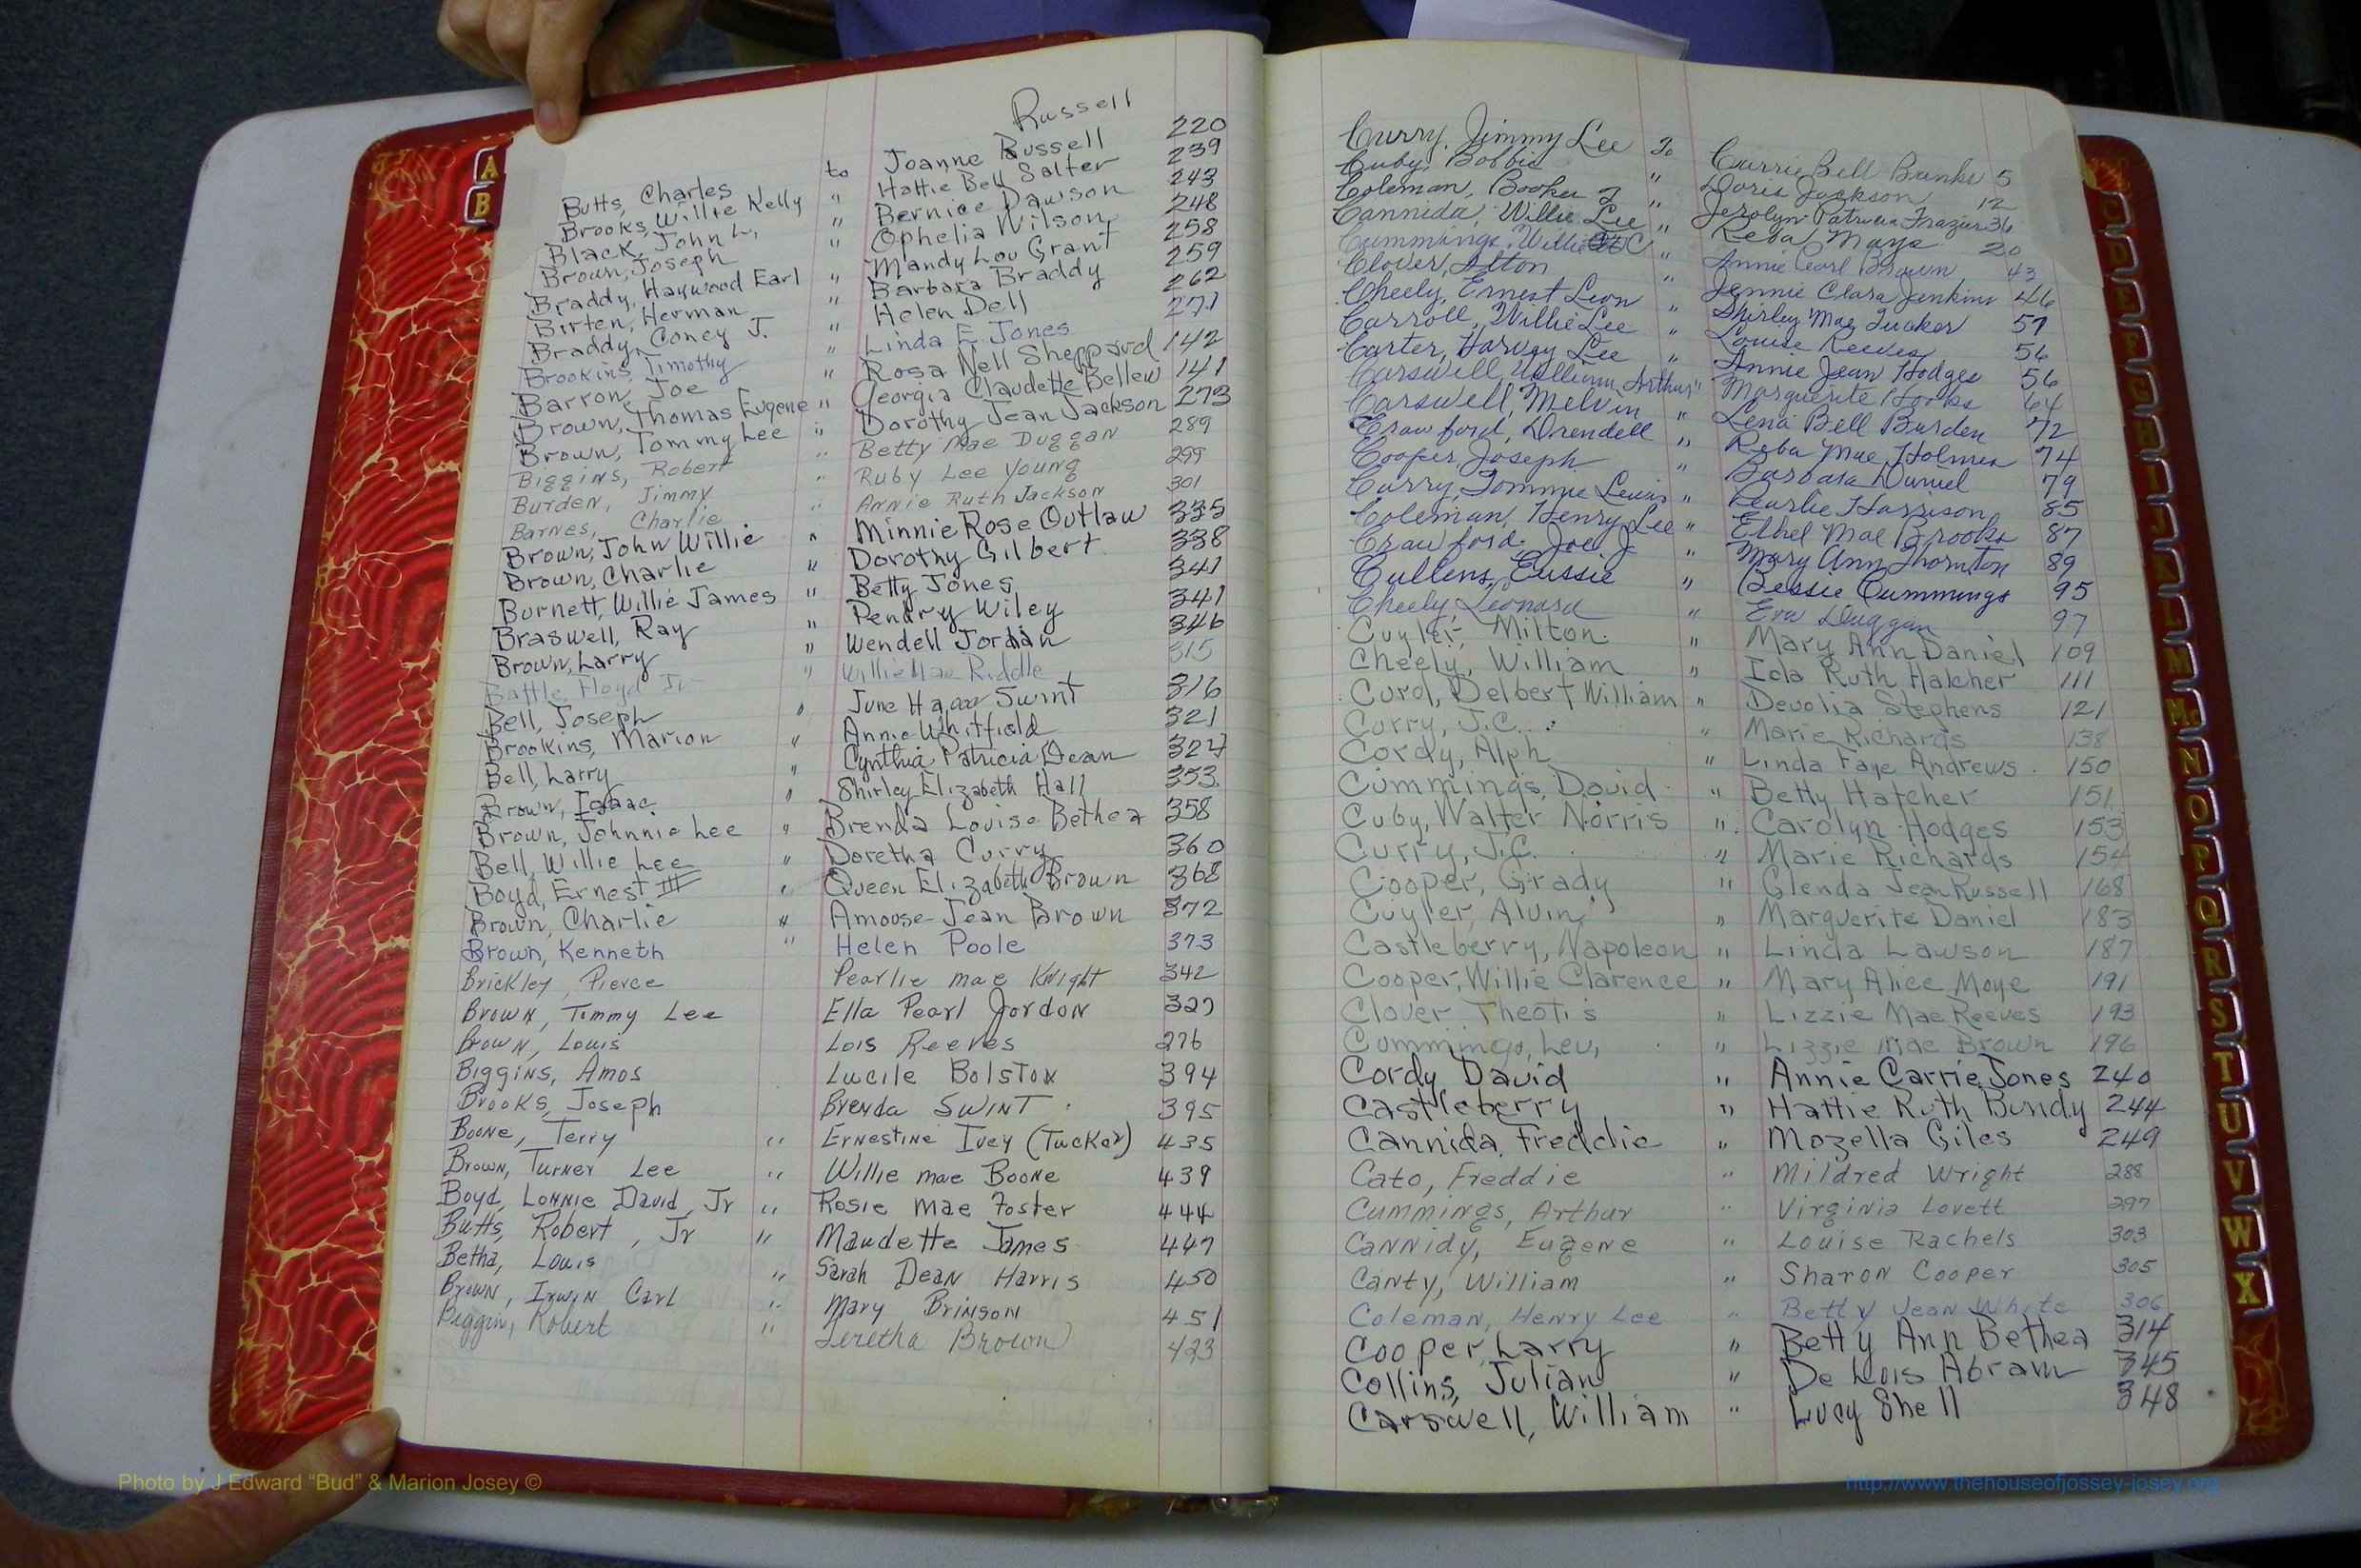 Russell
Butts, Charles to Joanne Russell 220
Brooks, Willie Kelly " Hattie Bell Salter 239
Black, John L. " Bernice Dawson 243
Brown, Joseph " Ophelia Wilson 248
Braddy, Haywood Earl " Mandy Lou Grant 258
Birten, Herman " Barbara Braddy 259
Braddy, Coney J. " Helen Dell 262
Brookins, Timothy " Linda E. Jones 271
Barron, Joe " Rosa Nell Sheppard 142
Brown, Thomas Eugene " Georgia Claudette Bellew 141
Brown, Tommy Lee " Dorothy Jean Jackson 273
Biggins, Robert " Betty Mae Duggan 289
Burden, Jimmy " Ruby Lee Young 299
Barnes, Charlie " Annie Ruth Jackson 301
Brown, John Willie " Minnie Rose Outlaw 335
Brown, Charlie " Dorothy Gilbert 338
Burnett, Willie James " Betty Jones 341
Braswell, Ray " Pendry Wiley 341
Brown, Larry " Wendell Jordan 346
Battle, Floyd Jr " Willie Mae Riddle 315
Bell, Joseph " June Swint 316
Brookins, Marion " Annie Whitfield 321
Bell, Larry " Cynthia Patricia Dean 327
Brown, Isaac " Shirley Elizabeth Hall 353
Brown, Johnnie Lee " Brenda Louise Bethea 358
Bell, Willie Lee " Doretha Curry 360
Boyd, Ernest III " Queen Elizabeth Brown 368
Brown, Charlie " Amouse Jean Brown 372
Brown, Kenneth " Helen Poole 373
Brickley, Pierce Pearlie mae Knight 342
Brown, Tommy Lee Ella Pearl Jordon 327
Brown, Louis Lois Reeves 276
Biggins, Amos Lucile Bolston 394
Brooks, Joseph Brenda Swint 395
Boone, Terry " Ernestine Ivey (Tucker) 435
Brown, Turner Lee " Willie mae Boone 439
Boyd, Lonnie David, Jr " Rosie mae Foster 444
Butts, Robert, Jr " Maudette James 447
Betha, Louis " Sarah Dean Harris 450
Brown, Irwin Carl " Mary Brinson 451
Biggin, Robert " Leretha Brown 423
Curry, Jimmy Lee To Carrie Bell Banks 5
Cuby, Bobbie " Doris Jackson 12
Coleman, Booker T " Jerolyn Patricia Frazier 36
Cannida, Willie Lee " Reba Mays 20
Cummings, Willie C " Annie Pearl Brown 43
Clover, Alton " Jennie Clara Jenkins 46
Cheely, Ernest Leon " Shirley Mae Tucker 51
Carroll, Willie Lee " Louise Reeves 56
Carter, Harvey Lee " Annie Jean Hodges 56
Carswell, William Arthur " Marguerite Hooks 64
Carswell, Melvin " Lena Bell Burden 72
Crawford, Drendell " Reba Mae Holmes 74
Cooper, Joseph " Barbara Daniel 79
Curry, Tommie Lewis " Pearlie Harrison 85
Coleman, Henry Lee " Ethel Mae Brooks 87
Crawford, Joe J " Mary Ann Thornton 89
Cullens, Eussie " Bessie Cummings 95
Cheely, Leonard " Eva Duggan 97
Cuyler, Milton " Mary Ann Daniel 109
Cheely, William " Ida Ruth Hatcher 111
Curd, Delbert William " Devolia Stephens 121
Curry, J.C. " Marie Richards 138
Cordy, Alph " Linda Faye Andrews 150
Cummings, David " Betty Hatcher 151
Cuby, Walter Norris " Carolyn Hodges 153
Curry, J.C. " Marie Richards 154
Cooper, Grady " Glenda Jean Russell 168
Cuyler, Alvin " Marguerite Daniel 183
Castleberry, Napoleon " Linda Lawson 187
Cooper, Willie Clarence " Mary Alice Moye 191
Clover, Theotis " Lizzie Mae Reeves 193
Cummings, Lev, " Lizzie Mae Brown 196
Cordy, David " Annie Carrie Jones 240
Castleberry, " Hattie Ruth Bundy 244
Cannida, Freddie " Mozella Giles 249
Cato, Freddie " Mildred Wright 288
Cummings, Arthur " Virginia Lovett 297
Cannidy, Eugene " Louise Rachels 303
Canty, William " Sharon Cooper 305
Coleman, Henry Lee " Betty Jean White 306
Cooper, Larry " Betty Ann Bethea 314
Collins, Julian " De Lois Abram 345
Carswell, William " Lucy Shell 348
A
B
C
D
E
F
G
H
I
J
K
L
M
Mc
N
O
P
Q
R
S
T
U
V
W
X
Photo by J Edward “Bud” & Marion Josey ©
http://www.thehouseofjossey-josey.org